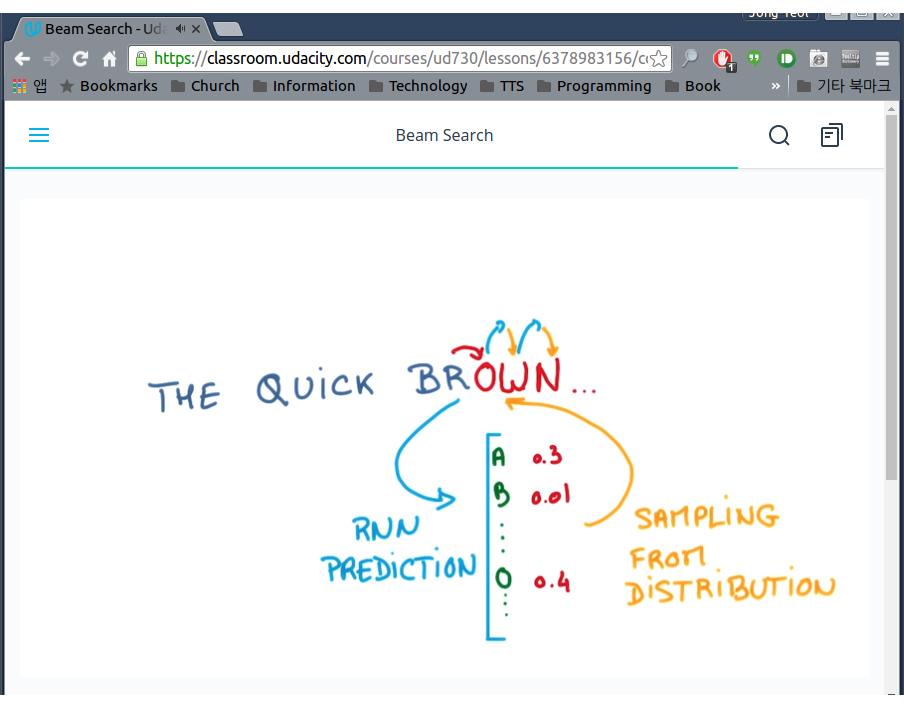 Beam Search - Uda
https://classroom.udacity.com/courses/ud730/lessons/6378983156/c
1
앱 Bookmarks Church Information Technology TTS Programming Book » 기타 북마크
Beam Search
THE QUICK BROWN...
A 0.3
B 0.01
O 0.4
RNN
PREDICTION
SAMPLING
FROM
DISTRIBUTION